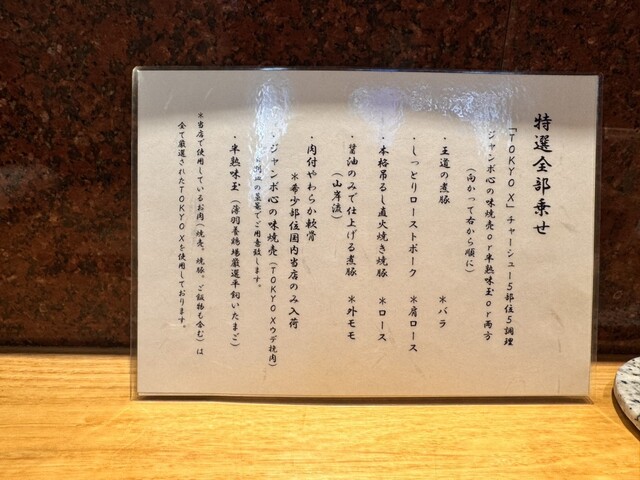 特選全部乗せ
「TOKYO X」チャーシュー5部位5調理
ジャンボ心の味焼売or半熟味玉or両方
(向かって右から順に)
・王道の煮豚 *バラ
・しっとりローストポーク *肩ロース
・本格吊るし直火焼き焼豚 *ロース
・醤油のみで仕上げる煮豚 *外モモ
(山岸流)
・肉付やわらか軟骨
*希少部位国内当店のみ入荷
・ジャンボ心の味焼売(TOKYO Xウデ挽肉)
別皿の蒸篭でご用意致します。
・半熟味玉(薄羽養鶏場厳選平飼いたまご)
*当店で使用しているお肉(焼売、焼豚、ご飯物も含む)は
全て厳選されたTOKYO Xを使用しております。